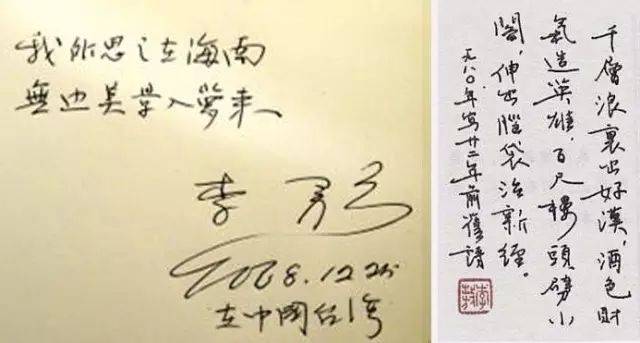 我所思之在海南
無边美景入夢来
李
2008.12.25
在中国台
千層浪裏出好漢，酒色財
氣造英雄，百尺樓頭劈小
閣，伸出腦袋治新經。
一九八〇年寫廿二年前舊詩
李敖